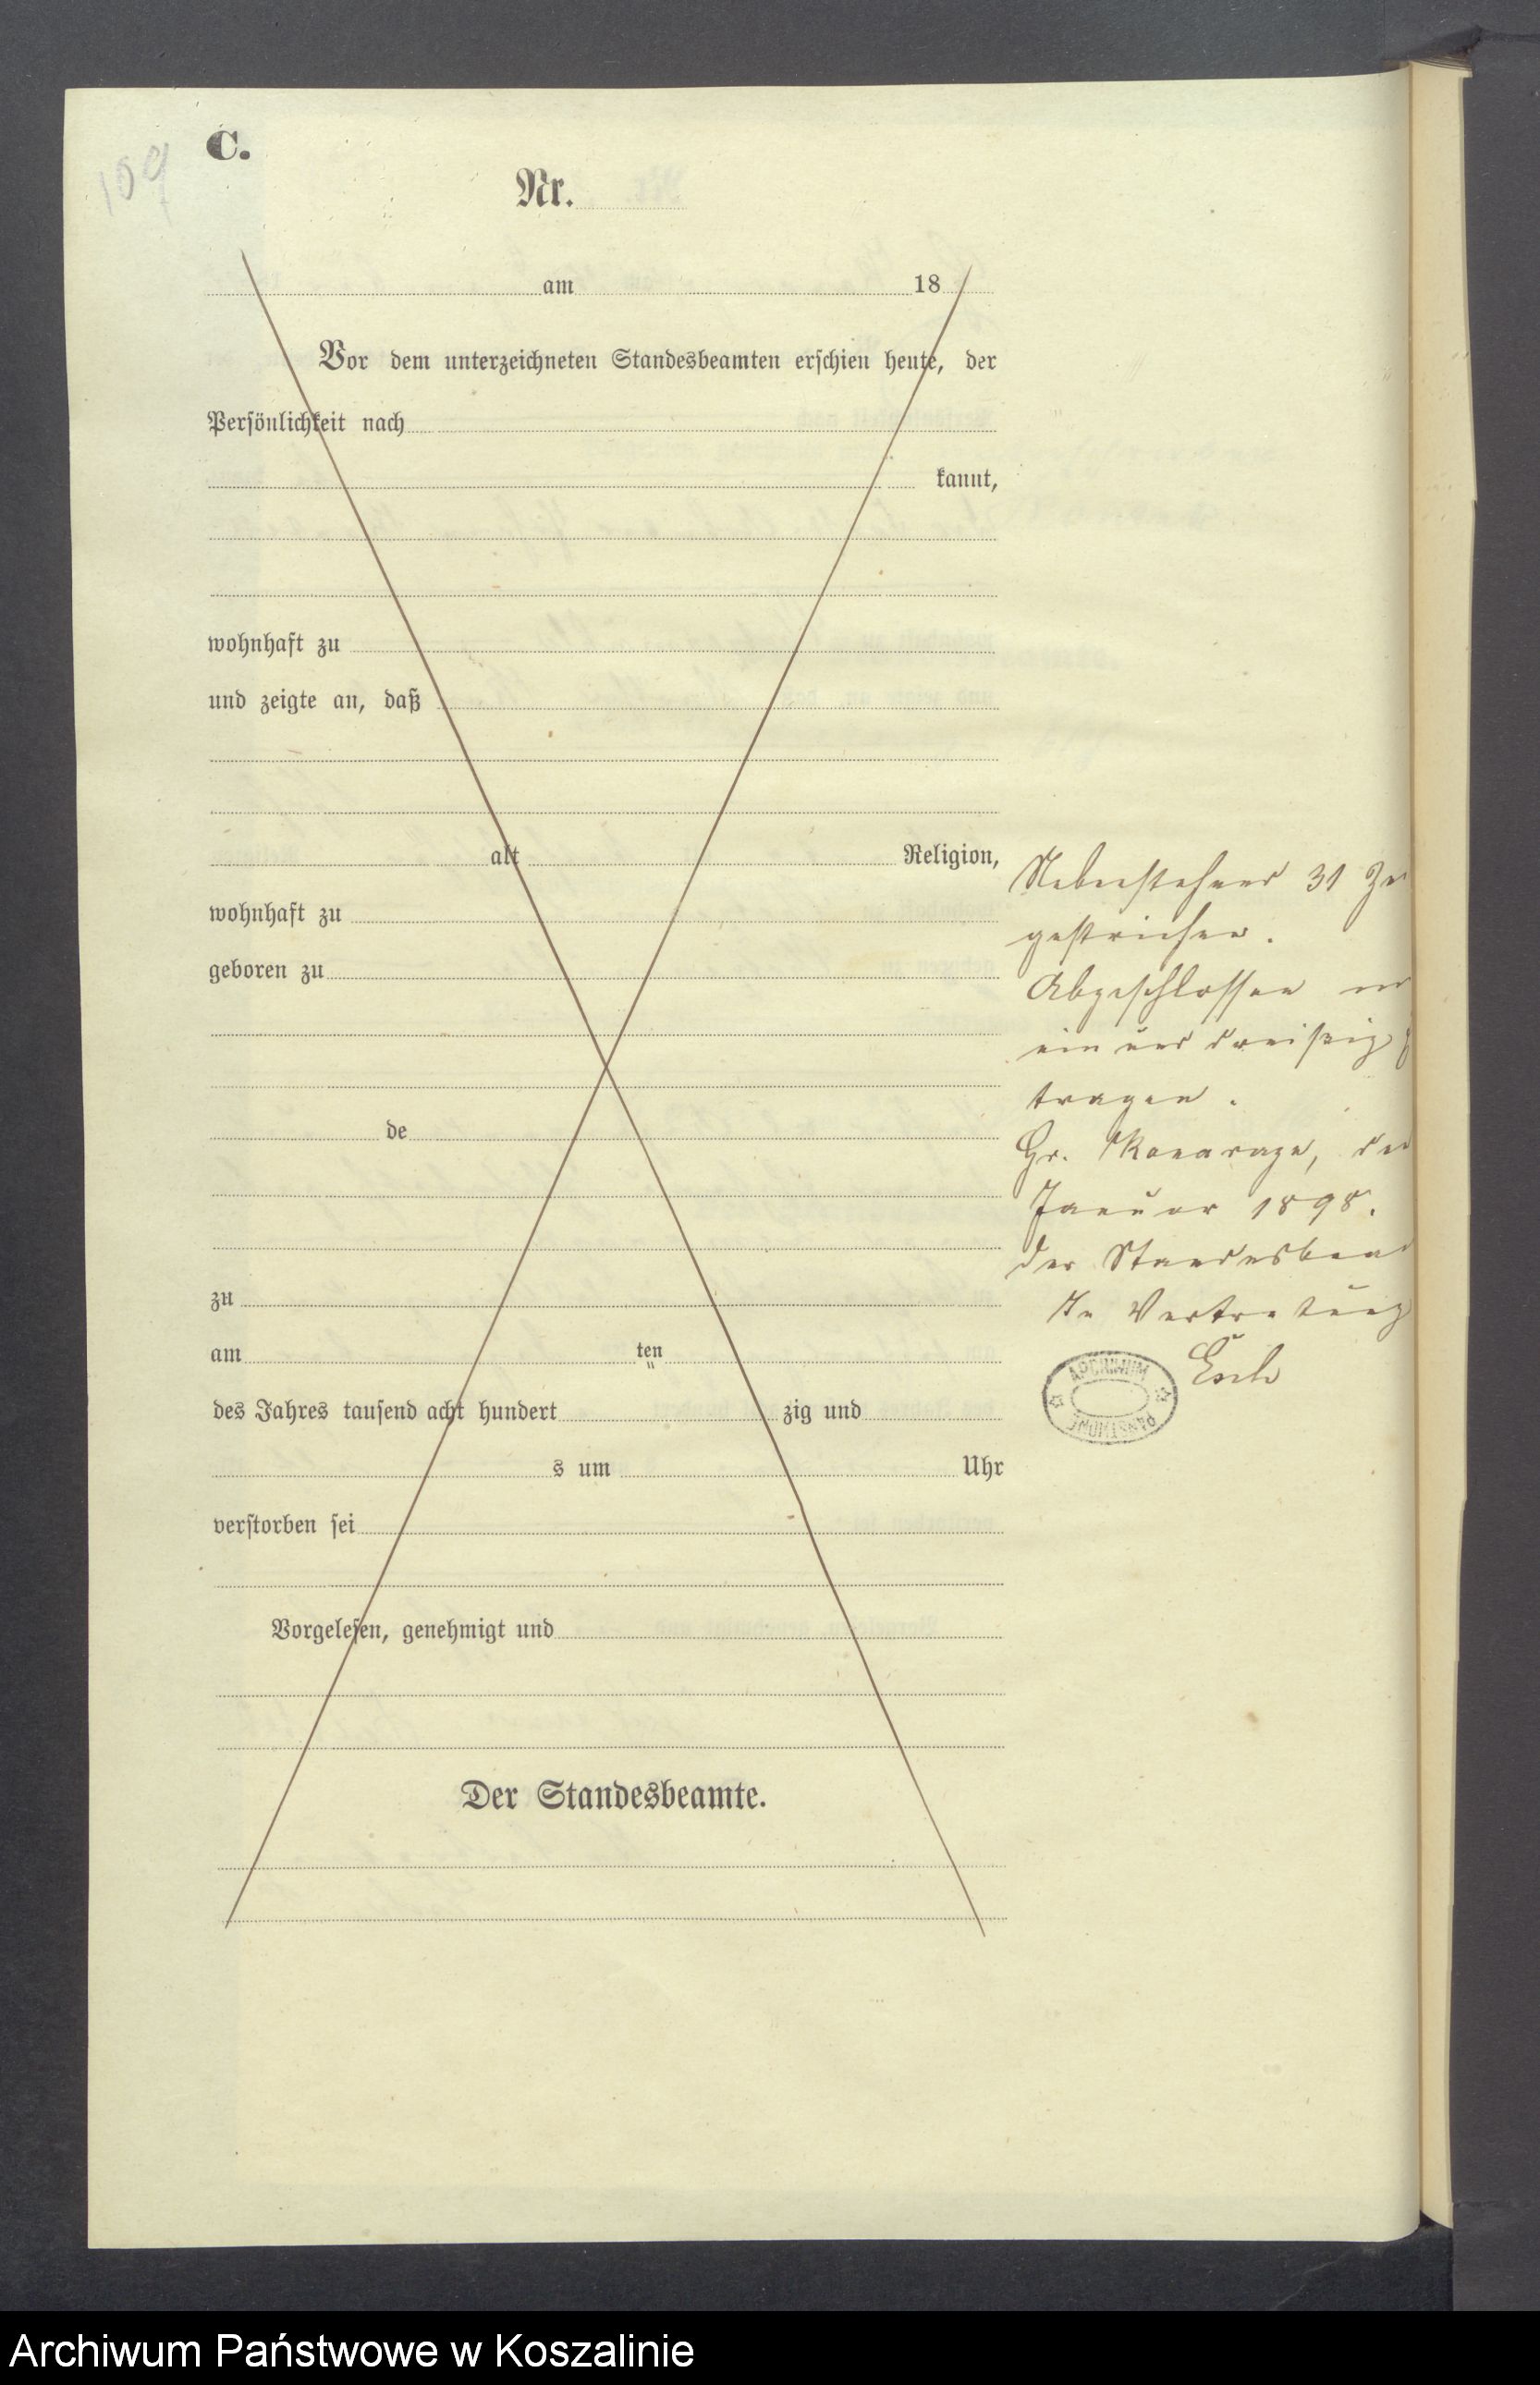 109
C.
Nr.
am 18
Vor dem unterzeichneten Standesbeamten erschien heute, der
Persönlichkeit nach
kannt,
wohnhaft zu
und zeigte an, daß
alt Religion,
wohnhaft zu
geboren zu
de
zu
am ten
des Jahres tausend acht hundert zig und
s um Uhr
verstorben sei
Vorgelesen, genehmigt und
Der Standesbeamte.
Nebenstehend 31
gestrichen.
Abgeschlossen
ein und dreißig
tragen.
Gr.
Januar 1898.
Der
In Vertretung
ARCHIWUM
PAŃSTWOWE
Archiwum Państwowe w Koszalinie